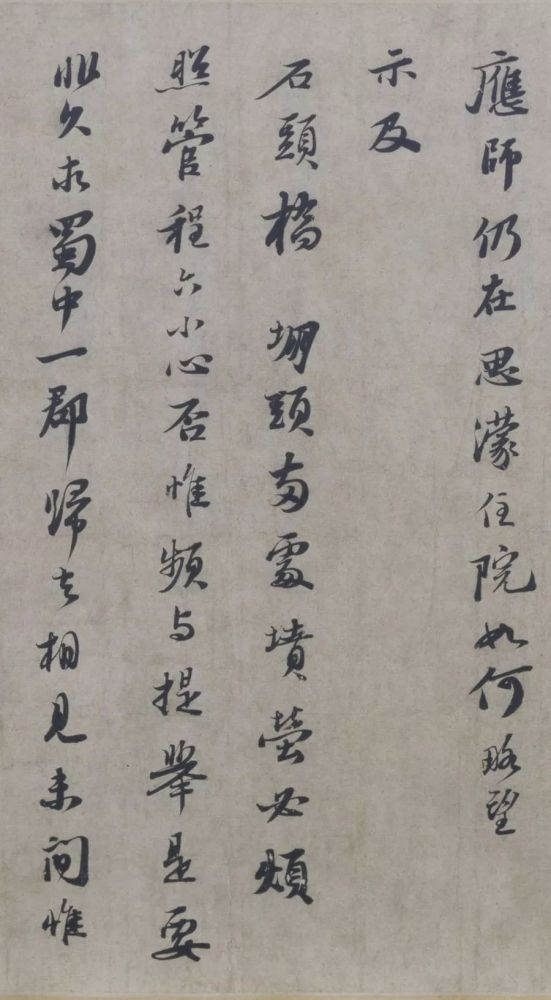 應師仍在思濛住院如何略望
示及
石頭橋 堋頭兩處墳塋必煩
照管程六小心否惟頻与提舉是要
非久求蜀中一郡歸去相見未間惟